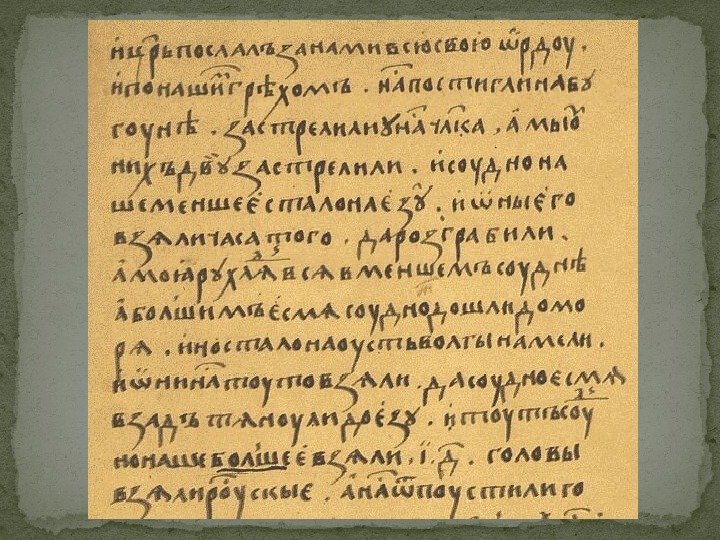 и цр҃ь послалъ за нами всю свою ѿрдоу .
и по наши(м) грѣхомъ . на(с) постигли на бу
гоунѣ . застрелили у на(с) чл҃ка , а мы ю
нихъ двꙋ застрелили . и соудно на
ше меншее стало на езꙋ . и ѡны его
взѧли часа того . да розграбили .
а моѧ рухлѧ(д) всѧ в меншемъ соуднѣ
а болшимъ есмѧ соудно дошли до мо
рѧ . ино стало на оусть волгы на мели .
и ѡни на(с) тоуто взѧли . да соудно есмѧ
взадъ тѧноули до езу . и тоутъ соу(д)
но наше болшее взѧли , ї . д҃ . головы
взѧли роускые . а на(с) ѿпоустили го